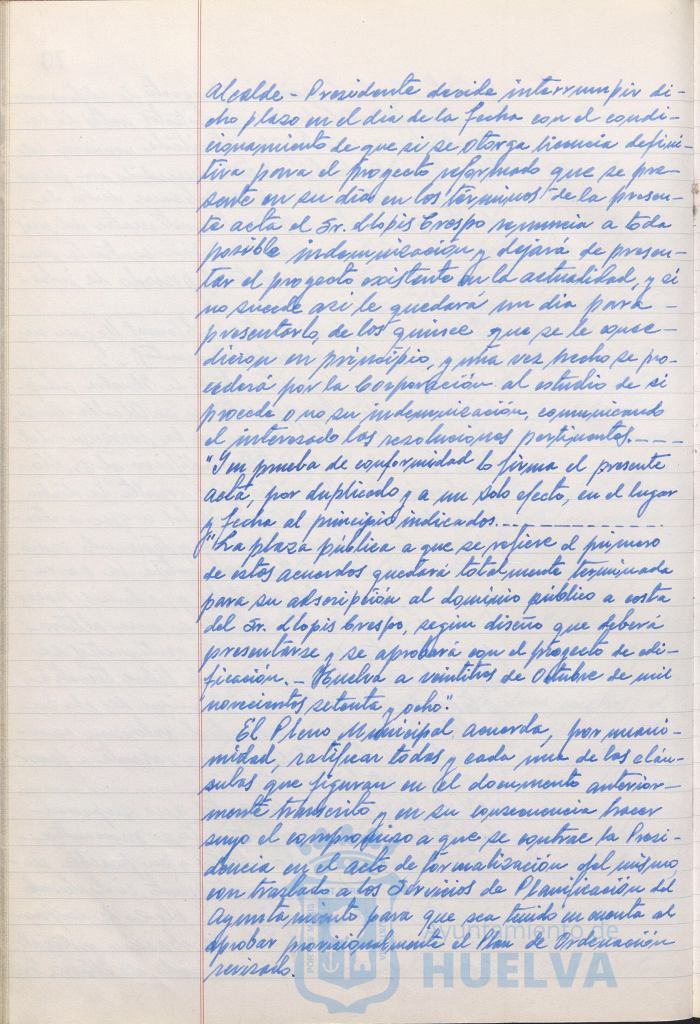 Alcalde-Presidente decide interrumpir di-
cho plazo en el dia de la fecha con el condi-
cionamiento de que si se otorga licencia defini-
tiva para el proyecto reformado que se pre-
sente en su dia en los términos de la presen-
te acta el Sr. Llopis Crespo renuncia a toda
posible indemnización y dejará de presen-
tar el proyecto existente en la actualidad, y si
no sucede asi le quedará un dia para
presentarlo, de los quince que se le conce-
dieron en principio, y una vez hecho se pro-
cederá por la Corporación al estudio de si
procede o no su indemnización, comunicando
al interesado las resoluciones pertinentes.----
"Y en prueba de conformidad lo firma el presente
acta, por duplicado y a un solo efecto, en el lugar
y fecha al principio indicados.--------------
"La plaza pública a que se refiere el primero
de estos acuerdos quedará totalmente terminada
para su adscripción al dominio público a costa
del Sr. Llopis Crespo, según diseño que deberá
presentarse y se aprobará con el proyecto de edi-
ficación.- Huelva a veintitres de Octubre de mil
novecientos setenta y ocho".
El Pleno Municipal acuerda, por unani-
midad, ratificar todas y cada una de las cláu-
sulas que figuran en el documento anterior-
mente transcrito y en su consecuencia hacer
suyo el compromiso a que se contrae la Presi-
dencia en el acto de formalización del mismo,
con traslado a los Servicios de Planificación del
Ayuntamiento para que sea tenido en cuenta al
aprobar provisionalmente el Plan de Ordenación
revisado.
Ayuntamiento de
HUELVA